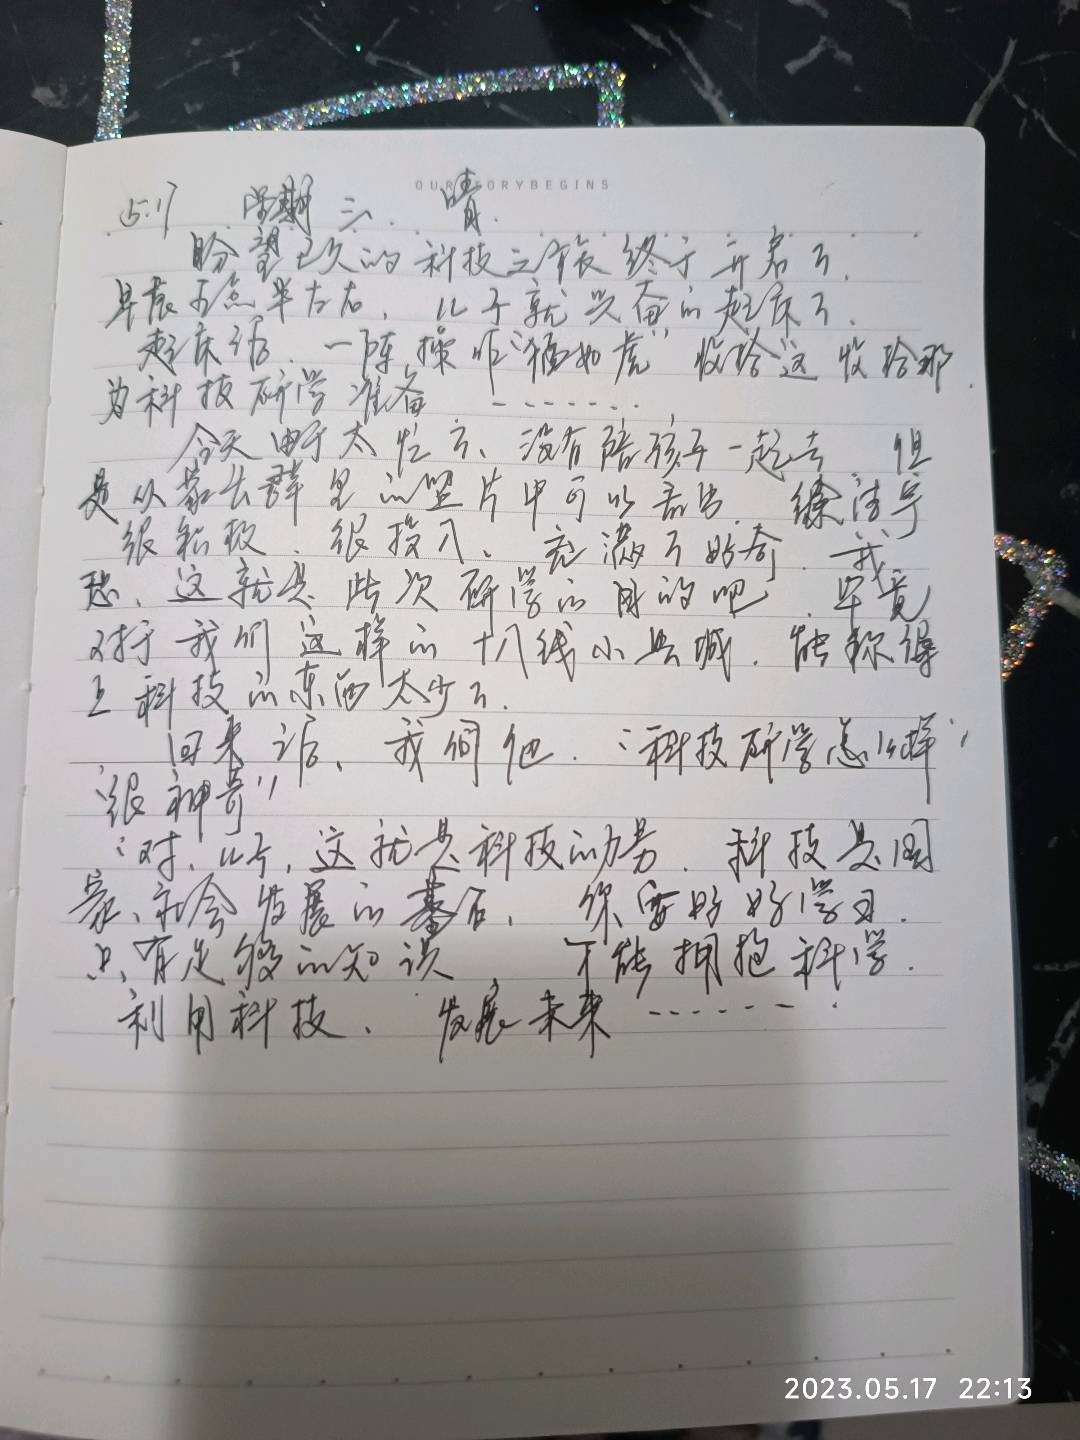 OUR STORY BEGINS
5.17 星期三. 晴.
盼望已久的科技之旅终于开启了.
早晨五点半左右, 儿子就兴奋的起床了.
起床后、一阵操作"猛如虎" 收拾这 收拾那.
为科技研学准备 -------
今天由于太忙了、没有陪孩子一起去 但
是从家长群里的照片中可以看出. 徐浩宇
很积极、很投入、充满了好奇. 我
想、这就是此次研学的目的吧. 毕竟
对于我们这样的十八线小县城. 能称得
上科技的东西太少了.
回来后、我问他. "科技研学怎么样"
"很神奇"
"对, 儿子, 这就是科技的力量. 科技是国
家、社会发展的基石, 你要好好学习.
只有足够的知识、才能拥抱科学.
利用科技、发展未来 -------
2023.05.17 22:13